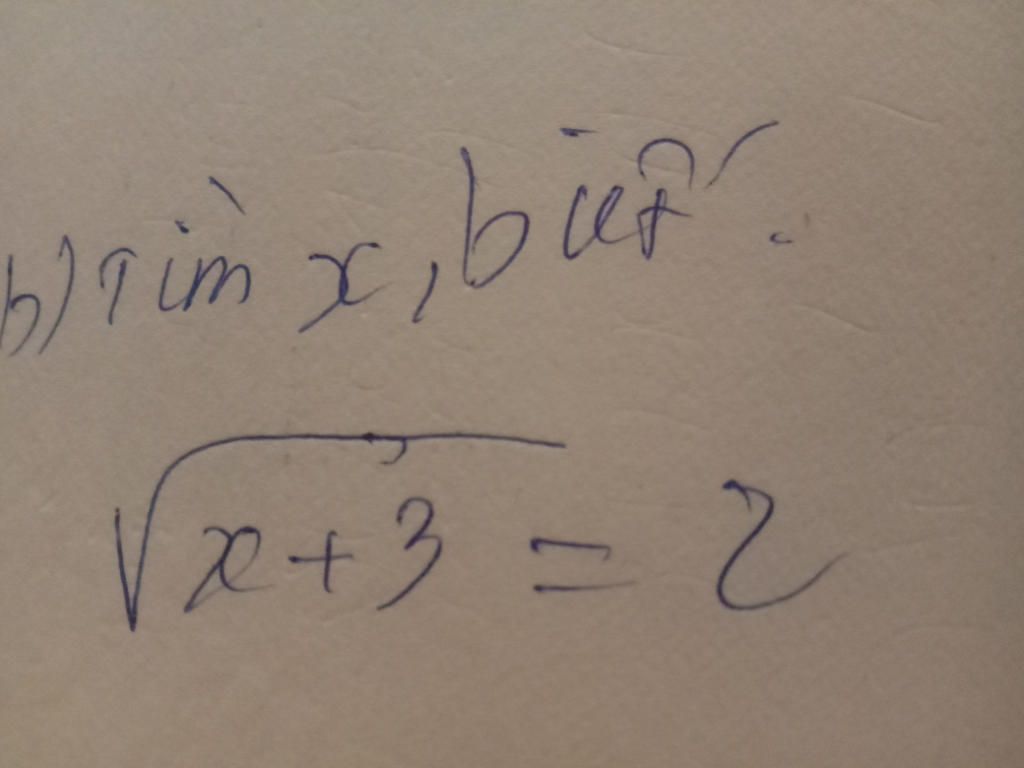 b) Tìm x, biết:
√(x+3) = 2